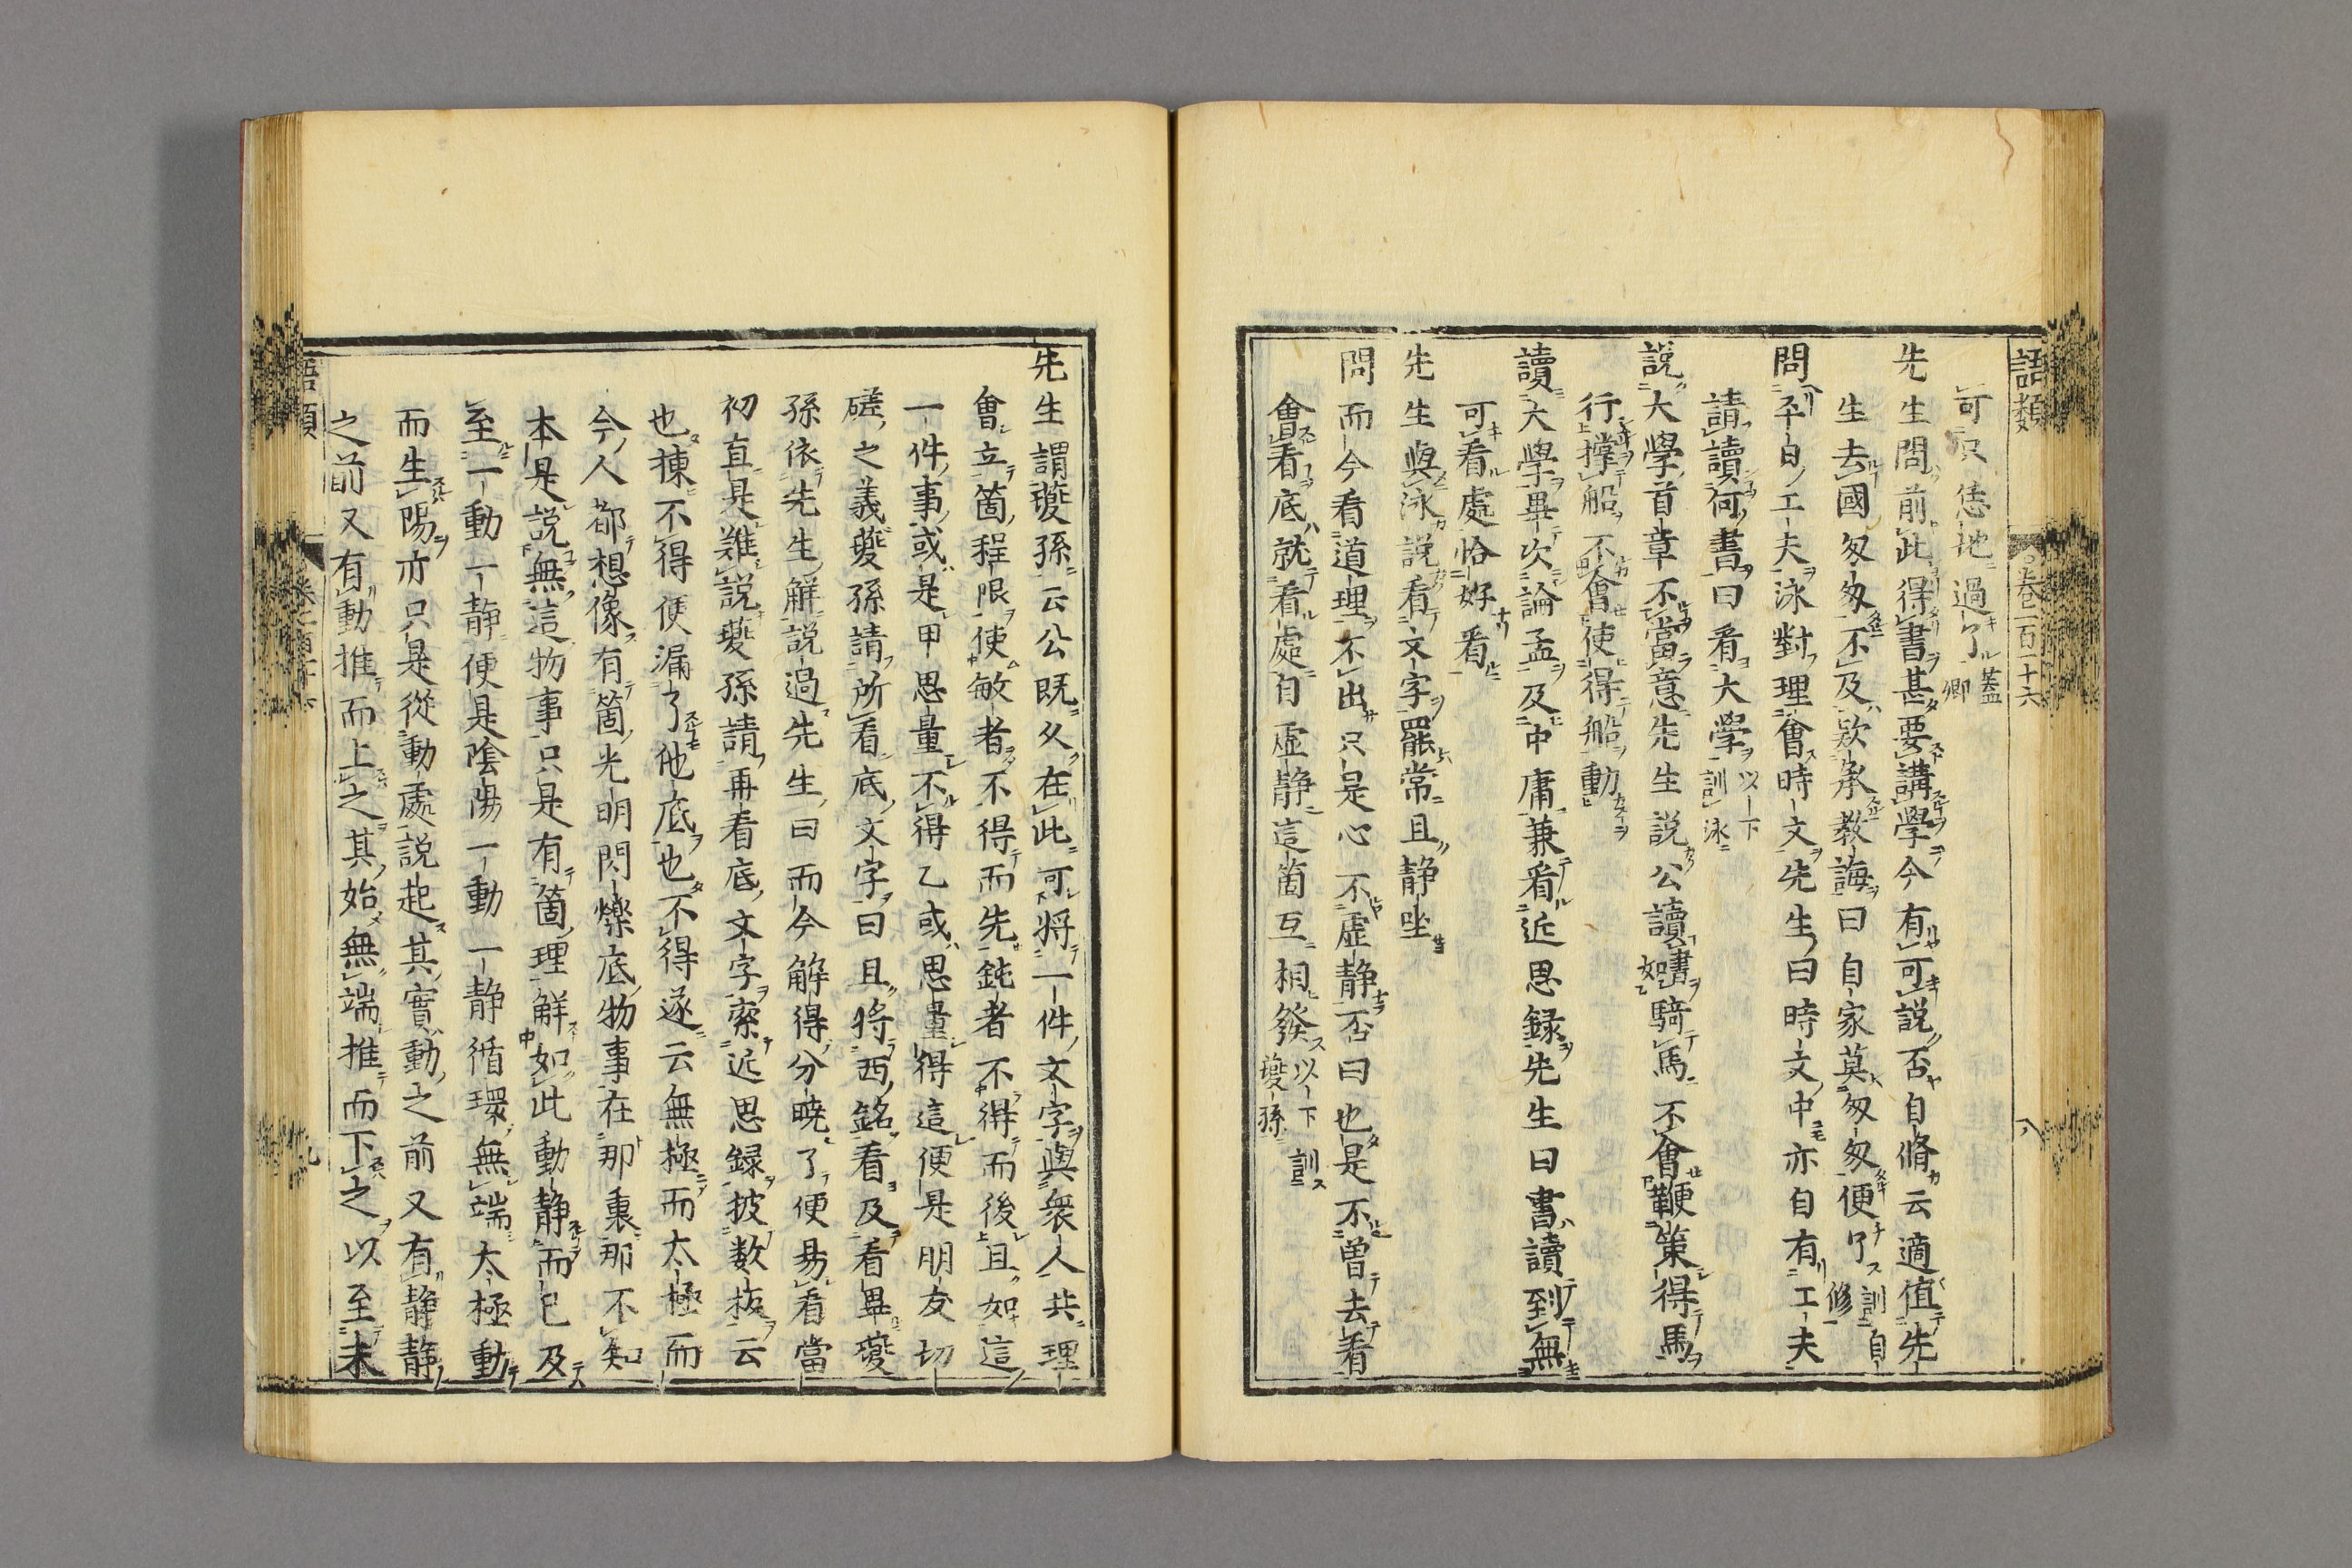 語類
卷一百一十六
八
可只恁地過了蓋卿
先生問前此得書甚要講學今有可說否自脩云適值先
生去國匆匆不及欵承教誨曰自家莫匆匆便了訓自修
問平日工夫泳對理會時文先生曰時文中亦自有工夫
請讀何書曰看大學以下訓泳
說大學首章不當意先生說公讀書如騎馬不會鞭策得馬
行撐船不會使得船動
讀大學畢次論孟及中庸兼看近思録先生曰書讀到無
可看處恰好看
先生與泳說看文字罷常且静坐
問而今看道理不出只是心不虛静否曰也是不曾去看
會看底就看處自虛静這箇互相發以下訓夔孫
先生謂夔孫云公既久在此可將一件文字與衆人共理
會立箇程限使敏者不得而先鈍者不得而後且如這
一件事或是甲思量不得乙或思量得這便是朋友切
磋之義夔孫請所看底文字曰且将西銘看及看畢夔
孫依先生解說過先生曰而今解得分曉了便易看當
初直是難說夔孫請再看底文字索近思録披數板云
也揀不得便漏了他底也不得遂云無極而太極而
今人都想像有箇光明閃爍底物事在那裏那不知
本是說無這物事只是有箇理解如此動静而已及
至一動一静便是陰陽一動一静循環無端太極動
而生陽亦只是從動處說起其實動之前又有静静
之前又有動推而上之其始無端推而下之以至未
語類
九